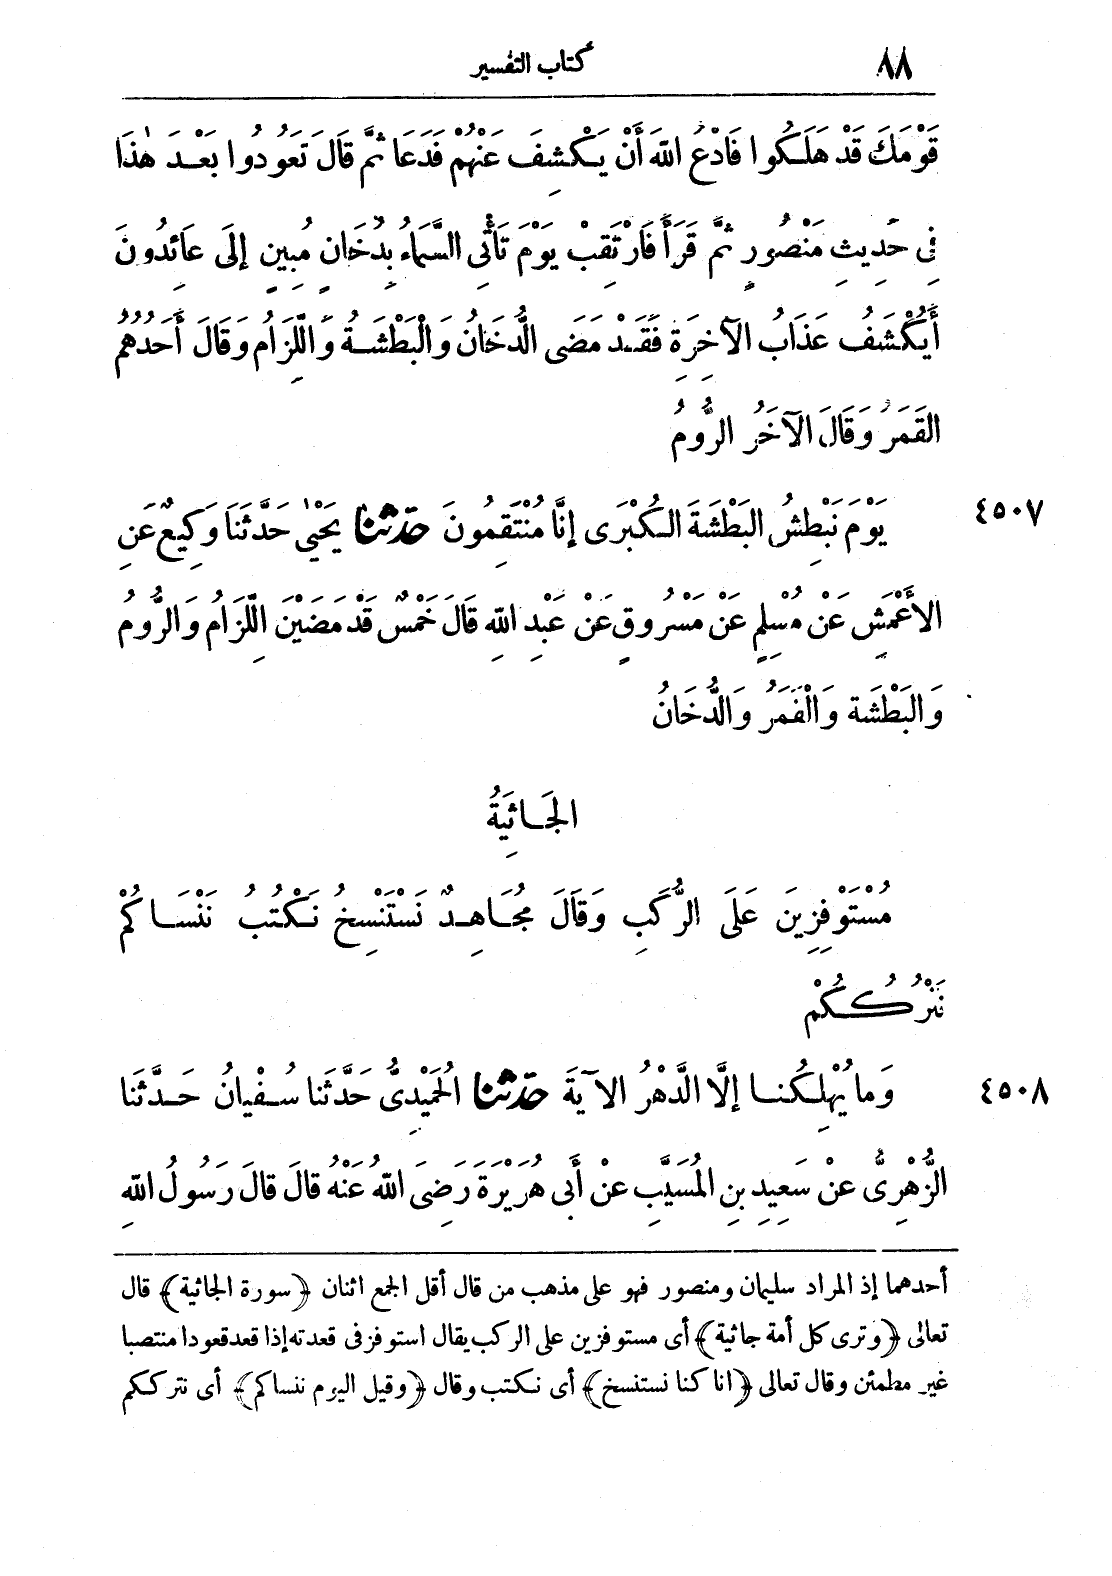 ٨٨ كتاب التفسير
قَوْمَكَ قَدْ هَلَكُوا فَادْعُ اللهَ أَنْ يَكْشِفَ عَنْهُمْ فَدَعَا ثُمَّ قَالَ تَعُودُوا بَعْدَ هٰذَا
فِى حَدِيثِ مَنْصُورٍ ثُمَّ قَرَأَ فَارْتَقِبْ يَوْمَ تَأْتِى السَّمَاءُ بِدُخَانٍ مُبِينٍ إِلَى عَائِدُونَ
أَيُكْشَفُ عَذَابُ الآخِرَةِ فَقَدْ مَضَى الدُّخَانُ وَالْبَطْشَةُ وَاللِّزَامُ وَقَالَ أَحَدُهُمُ
القَمَرُ وَقَالَ الآخَرُ الرُّومُ
٤٥٠٧ يَوْمَ نَبْطِشُ البَطْشَةَ الكُبْرَى إِنَّا مُنْتَقِمُونَ حَدَّثَنَا يَحْيٰى حَدَّثَنَا وَكِيعٌ عَنِ
الأَعْمَشِ عَنْ مُسْلِمٍ عَنْ مَسْرُوقٍ عَنْ عَبْدِ اللهِ قَالَ خَمْسٌ قَدْ مَضَيْنَ اللِّزَامُ وَالرُّومُ
وَالبَطْشَة وَالْقَمَرُ وَالدُّخَانُ
الجَاثِيَةُ
مُسْتَوْفِزِينَ عَلَى الرُّكَبِ وَقَالَ مُجَاهِدٌ نَسْتَنْسِخُ نَكْتُبُ نَنْسَاكُمْ
نَتْرُكُكُمْ
٤٥٠٨ وَمَا يُهْلِكُنَا إِلَّا الدَّهْرُ الآيَةَ حَدَّثَنَا الحُمَيْدِىُّ حَدَّثَنَا سُفْيَانُ حَدَّثَنَا
الزُّهْرِىُّ عَنْ سَعِيدِ بنِ المُسَيَّبِ عَنْ أَبِى هُرَيْرَةَ رَضِىَ اللهُ عَنْهُ قَالَ قَالَ رَسُولُ اللهِ
أحدهما إذ المراد سليمان ومنصور فهو على مذهب من قال أقل الجمع اثنان ﴿سورة الجاثية﴾ قال
تعالى ﴿وترى كل أمة جاثية﴾ أى مستوفزين على الركب يقال استوفز فى قعدته إذا قعد قعودا منتصبا
غير مطمئن وقال تعالى ﴿انا كنا نستنسخ﴾ أى نكتب وقال ﴿وقيل اليوم ننساكم﴾ أى نترككم